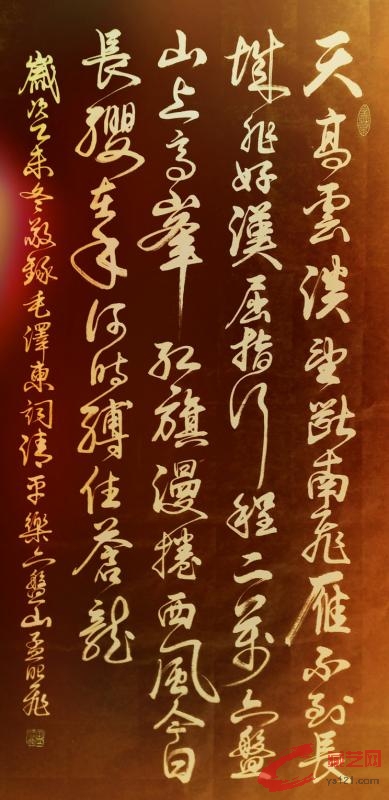 天高雲淡望斷南飛雁不到長
城非好漢屈指行程二萬六盤
山上高峯紅旗漫捲西風今日
長纓在手何時縛住蒼龍
歲次乙未冬敬錄毛澤東詞清平樂六盤山孟昭飛
艺网
ya121.com